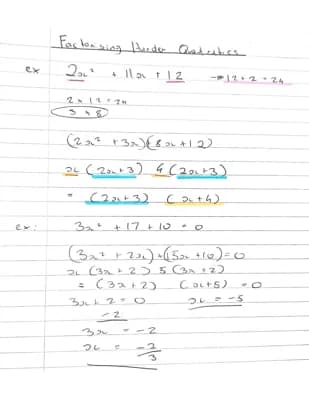 Factorising Harder Quadratics
ex 2x² + 11x + 12 → 12 × 2 = 24
2 × 12 = 24
3 × 8
(2x² + 3x)(8x + 12)
x (2x+3) 4 (2x+3)
= (2x+3) (x+4)
ex: 3x² + 17 + 10 = 0
(3x² + 2x) + (15x + 10) = 0
x (3x + 2) 5 (3x + 2)
= (3x + 2) (x+5) = 0
3x + 2 = 0 x = -5
-2
3x = -2
x = -2/3